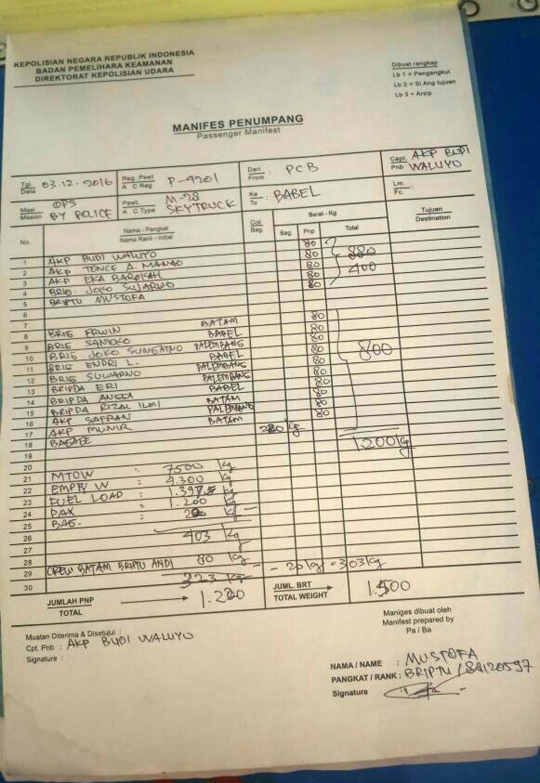 KEPOLISIAN NEGARA REPUBLIK INDONESIA
BADAN PEMELIHARA KEAMANAN
DIREKTORAT KEPOLISIAN UDARA
Dibuat rangkap
Lb 1 = Pengangkut
Lb 2 = Si Ang tujuan
Lb 3 = Arsip
MANIFES PENUMPANG
Passenger Manifest
Tgl. Date 03.12-2016 Reg. Pswt A C Reg P-4201 Dari From : PCB Capt. Pnb AKP BUDI WALUYO
Misi Mission OPS BY POLICE Pswt. A C Type M-28 SKYTRUCK Ke To : BABEL Lm. Fc. :
No. Nama - Pangkat Nama Rank - Initial Coli Bag. Berat - Kg Bag. Pnp Total Tujuan Destination
1 AKP BUDI WALUYO 80
2 AKP TONCE D. MANAO 80
3 AKP EKA BAROKAH 80 400
4 BRIG. JOKO SUJARWO 80
5 BRIPTU MUSTOFA 80
6
7
8 BRIG ERWIN BATAM 80
9 BRIG SAMOKO BABEL 80
10 BRIG JOKO PALEMBANG 80
11 BRIG ENDRI L. BABEL 80 800
12 BRIG SUWARNO PALEMBANG 80
13 BRIPDA ERI PALEMBANG 80
14 BRIPDA ANGGA BABEL 80
15 BRIPDA RIZAL ILMI BATAM 80
16 AKP SAFRAN PALEMBANG 80
17 AKP MUNIR BATAM 80
18 BAGAGE kg 1200 kg
19
20
21 MTOW : 7500 kg
22 EMPTY W : 4.300 kg
23 FUEL LOAD : kg
24 PAX : 1.200 kg
25 BAG. : kg
26 403 kg
27
28
29 CREW BATAM BRIPTU ANDI 80 kg
30 323 kg - 20 kg = 303 kg
JUMLAH PNP TOTAL JUML. BRT TOTAL WEIGHT 1.500
Muatan Diterima & Disetujui :
Cpt. Pnb : AKP BUDI WALUYO
Signature :
Maniges dibuat oleh
Manifest prepared by
Pa / Ba
NAMA / NAME : MUSTOFA
PANGKAT / RANK : BRIPTU / 88120597
Signature :